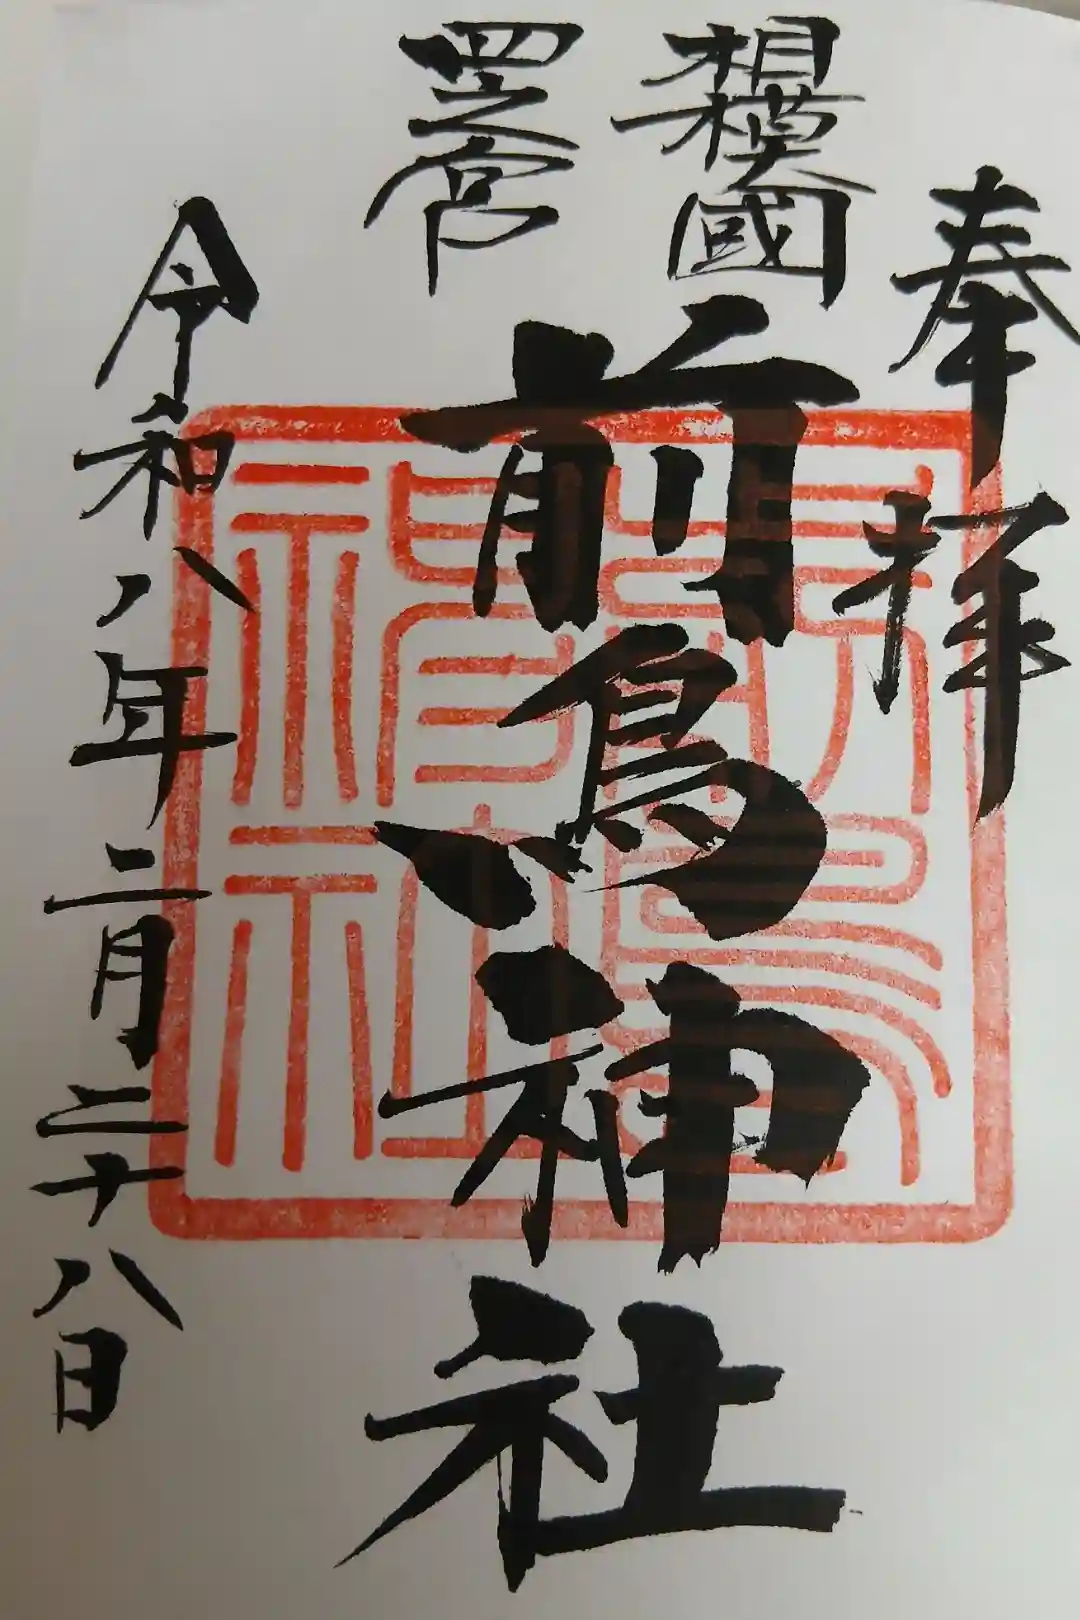 奉拝
相模國
四之宮
前鳥神社
令和八年二月二十八日